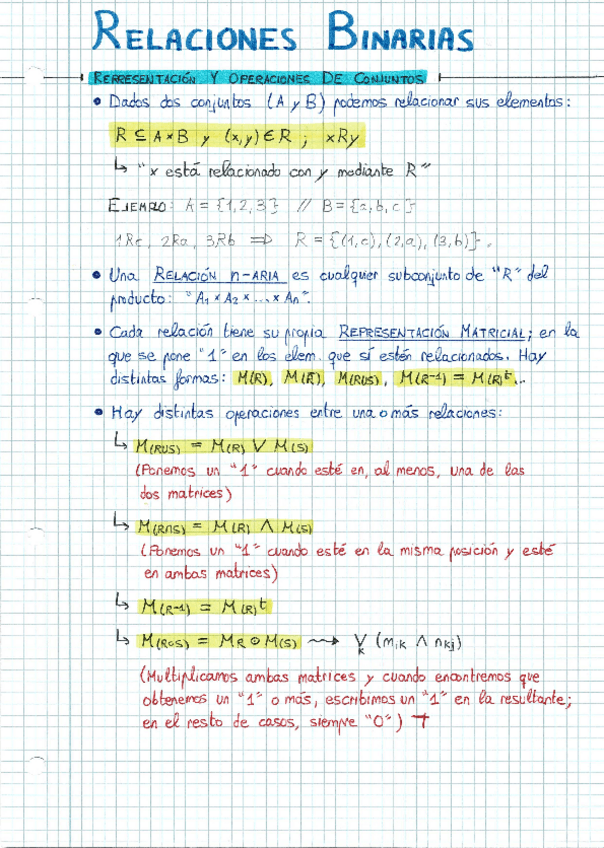 RELACIONES BINARIAS
REPRESENTACIÓN Y OPERACIONES DE CONJUNTOS
• Dados dos conjuntos (A y B) podemos relacionar sus elementos:
R ⊆ A×B y (x,y) ∈ R ; xRy
↳ "x está relacionado con y mediante R"
EJEMPLO: A = {1,2,3} // B = {a,b,c}
1Rc, 2Ra, 3Rb ⇒ R = {(1,c), (2,a), (3,b)}.
• Una RELACIÓN n-ARIA es cualquier subconjunto de "R" del
producto: "A₁ × A₂ × ... × Aₙ".
• Cada relación tiene su propia REPRESENTACIÓN MATRICIAL; en la
que se pone "1" en los elem. que sí estén relacionados. Hay
distintas formas: M(R), M(R̄), M(R∪S), M(R⁻¹) = M(R)ᵗ...
• Hay distintas operaciones entre una o más relaciones:
↳ M(R∪S) = M(R) ∨ M(S)
(Ponemos un "1" cuando esté en, al menos, una de las
dos matrices)
↳ M(R∩S) = M(R) ∧ M(S)
(Ponemos un "1" cuando esté en la misma posición y esté
en ambas matrices)
↳ M(R-1) = M(R)ᵗ
↳ M(R∘S) = MR ⊙ M(S) ⟿ ∨ₖ (mᵢₖ ∧ nₖⱼ)
(Multiplicamos ambas matrices y cuando encontremos que
obtenemos un "1" o más, escribimos un "1" en la resultante;
en el resto de casos, siempre "0")